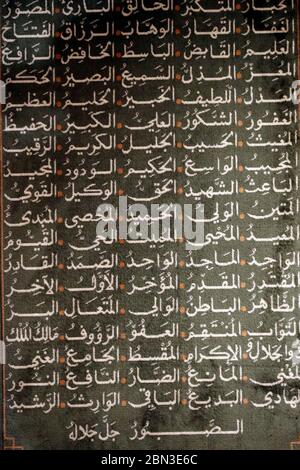 الجبار المتكبر الخالق البارئ المصور
الغفار القهار الوهاب الرزاق الفتاح
العليم القابض الباسط الخافض الرافع
المعز المذل السميع البصير الحكم
العدل اللطيف الخبير الحليم العظيم
الغفور الشكور العلي الكبير الحفيظ
المقيت الحسيب الجليل الكريم الرقيب
المجيب الواسع الحكيم الودود المجيد
الباعث الشهيد الحق الوكيل القوي
المتين الولي الحميد المحصي المبدئ
المعيد المحيي المميت الحي القيوم
الواجد الماجد الواحد الصمد القادر
المقتدر المقدم المؤخر الأول الآخر
الظاهر الباطن الوالي المتعال البر
التواب المنتقم العفو الرؤوف مالك الملك
ذو الجلال والإكرام المقسط الجامع الغني
المغني المانع الضار النافع النور
الهادي البديع الباقي الوارث الرشيد
الصبور جل جلاله
alamy
Image ID: 2BN3E6C
www.alamy.com